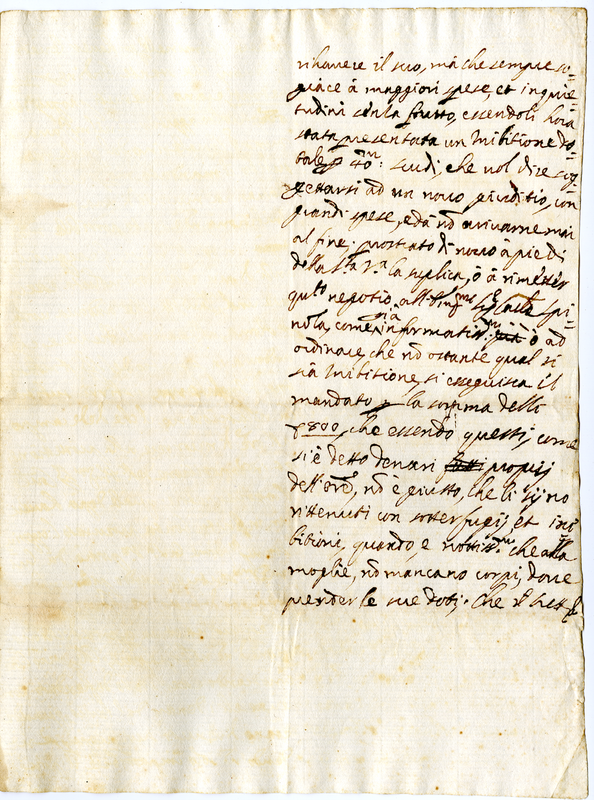 rihavere il suo, mà che sempre so=
giace à maggiori spese, et inquie=
tudini senza frutto, essendoli hora
stata presentata un Inibitione do=
tale p 40m: scudi, che nol dire sog=
gettarsi ad un novo giuditio, con
grandi spese, e dà nō arrivarne mai
al fine; prostrato di novo à piedi
della Sta Va la supplica, ò à rimetter
qto negotio all' Spi=
nola, come già informatissmo ò ad
ordinare, che nō ostante qual si
sia Inibitione, si esseguisca il
mandato p la somma delli
800, che essendo questi, come
si è detto denari proprij
dell'Orē, nō è giusto, che li sijno
rittenuti con sotterfugij, et ini
bitioni, quando, è notissmo che alla
moglie, nō mancano corpi, dove
prender le sue doti. Che